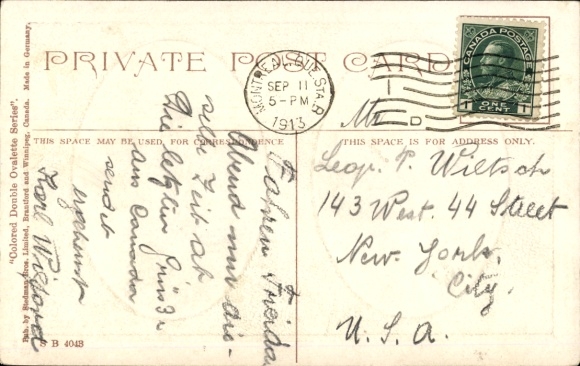 PRIVATE POST CARD
MONTREAL, QUE. STA. A
SEP 11
5-PM
1913
CANADA POSTAGE
1 ONE CENT 1
THIS SPACE MAY BE USED FOR CORRESPONDENCE
THIS SPACE IS FOR ADDRESS ONLY.
"Colored Double Ovalette Series". Made in Germany.
Pub. by Stedman Bros. Limited, Brantford and Winnipeg, Canada.
S B 4043
Fahren Freidag
Abend um die-
selbe Zeit ab
Die letzten Grüsse
aus Canada
sendet
Mr.
Leop. P. Wiltsch
143 West. 44 Street
New. York.
City.
U. S. A.